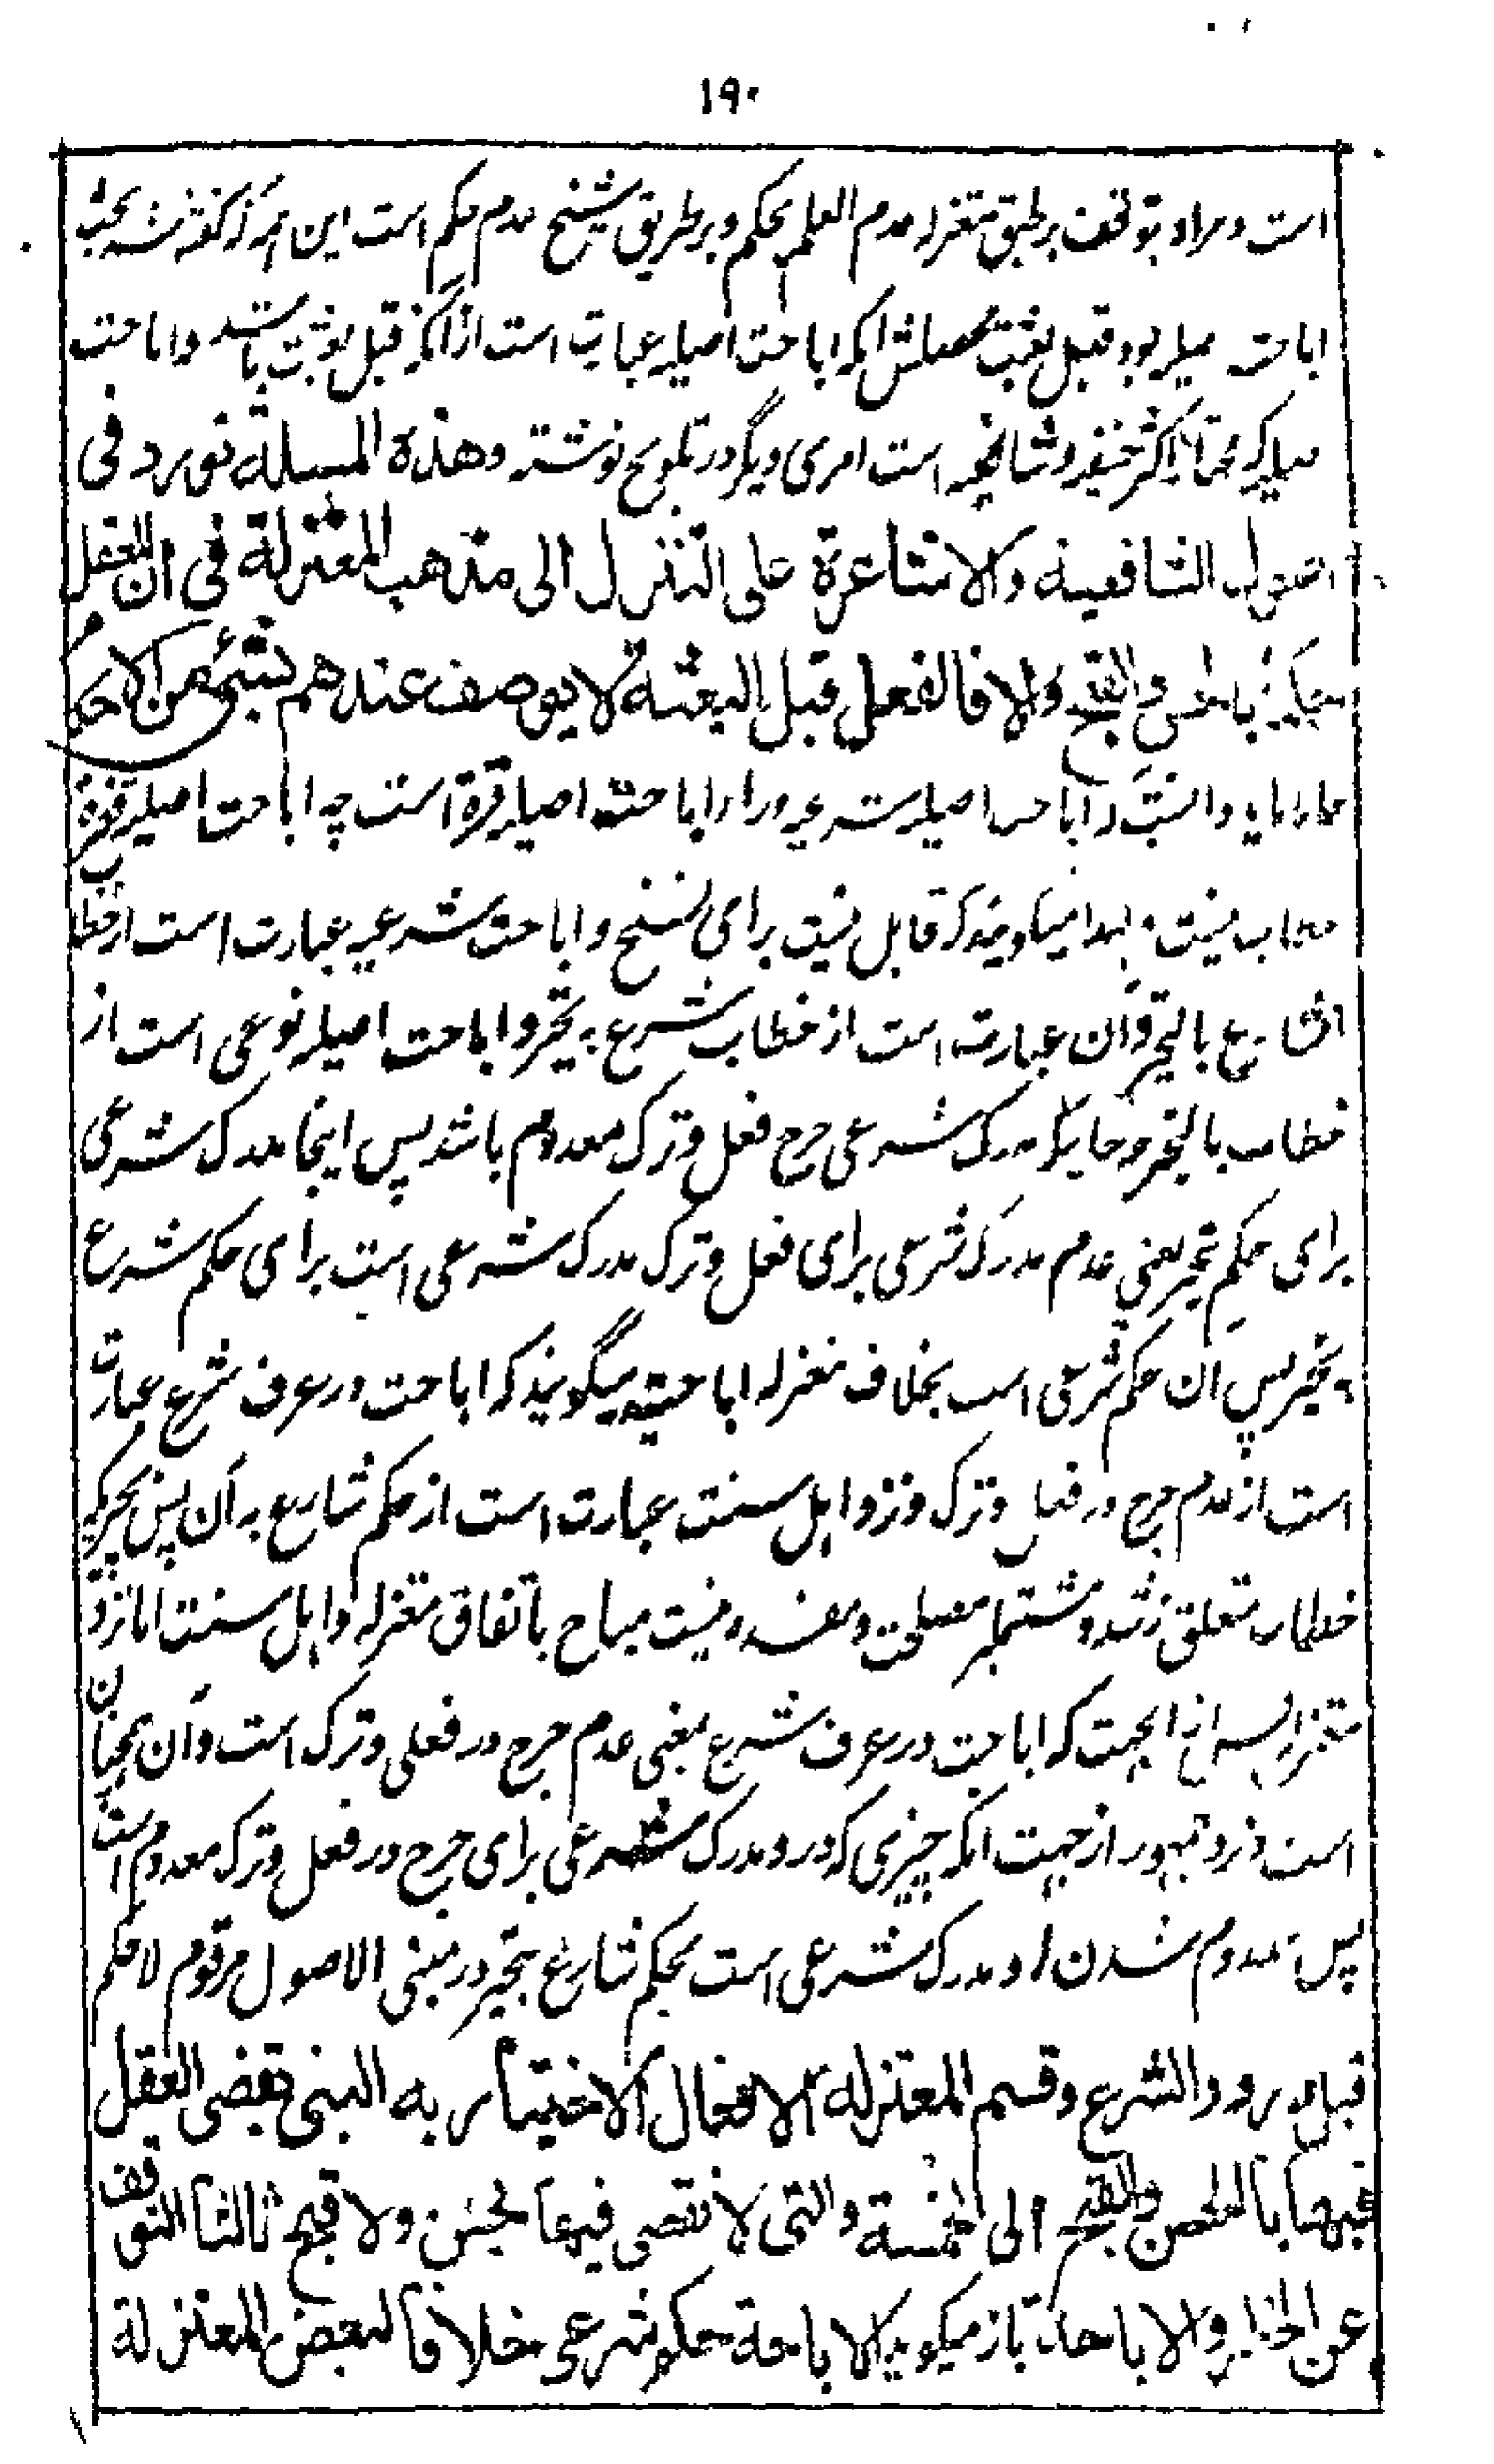 ۱۹۰
است و مراد بتوقف بر طبق معتزله عدم العلم بحکم و بر طریق شیخ عدم حکم است این همه که گفته شد بحث
اباحت اصلیه بود قبل بعثت محصلش آنکه اباحت اصلیه عبارت است از آنکه قبل بعثت باشد و اباحت
اصلیه که مختار اکثر حنفیه و شافعیه است امری دیگر در تلویح نوشته وهذه المسئلة تورد فی
اصول الشافعیة والاشاعرة علی التنزل الی مذهب المعتزلة فی ان للعقل
حکما بالحسن والقبح والا فالفعل قبل البعثة لا یوصف عندهم بشیٔ من الاحکام
باید دانست که اباحت اصلیه شرعیه ورای اباحت اصلیه فترة است چه اباحت اصلیه فترة
خطاب نیست و لهذا میگویند که قابل نیست برای نسخ و اباحت شرعیه عبارت است از خطاب
الشارع بالتخیر و آن عبارت است از خطاب شرع به تخیر و اباحت اصلیه نوعی است از
خطاب بالتخیر و جائیکه مدرک شرعی حرج فعل و ترک معدوم باشد پس اینجا مدرک شرعی
برای حکم تخیر یعنی عدم مدرک شرعی برای فعل و ترک مدرک شرعی است برای حکم شرع
به تخیر پس آن حکم شرعی است بخلاف معتزله اباحتیه میگویند که اباحت در عرف شرع عبارت
است از عدم حرج در فعل و ترک و نزد اهل سنت عبارت است از حکم شارع به آن پس چیزیکه
خطاب متعلق نشده و مشتمل بر مصلحت و مفسده نیست مباح باتفاق معتزله و اهل سنت اما نزد
معتزله پس از انجهت که اباحت در عرف شرع بمعنی عدم حرج در فعل و ترک است و آن همچنان
است و نزد جمهور از جهت آنکه چیزی که درو مدرک شرعی برای حرج در فعل و ترک معدوم است
پس معدوم شدن او مدرک شرعی است بحکم شارع بتخیر در مبنی الاصول مرقوم لا حکم
قبل ورود الشرع وقسم المعتزله الافعال الاختیاریه التی یقضی العقل
فیها بالحسن والقبح الی الخمسة والتی لا تقضی فیها بحسن ولا قبح ثالثا التوقف
عن الحظر والاباحة باز میگوید الاباحة حکم شرعی خلافا لبعض المعتزلة